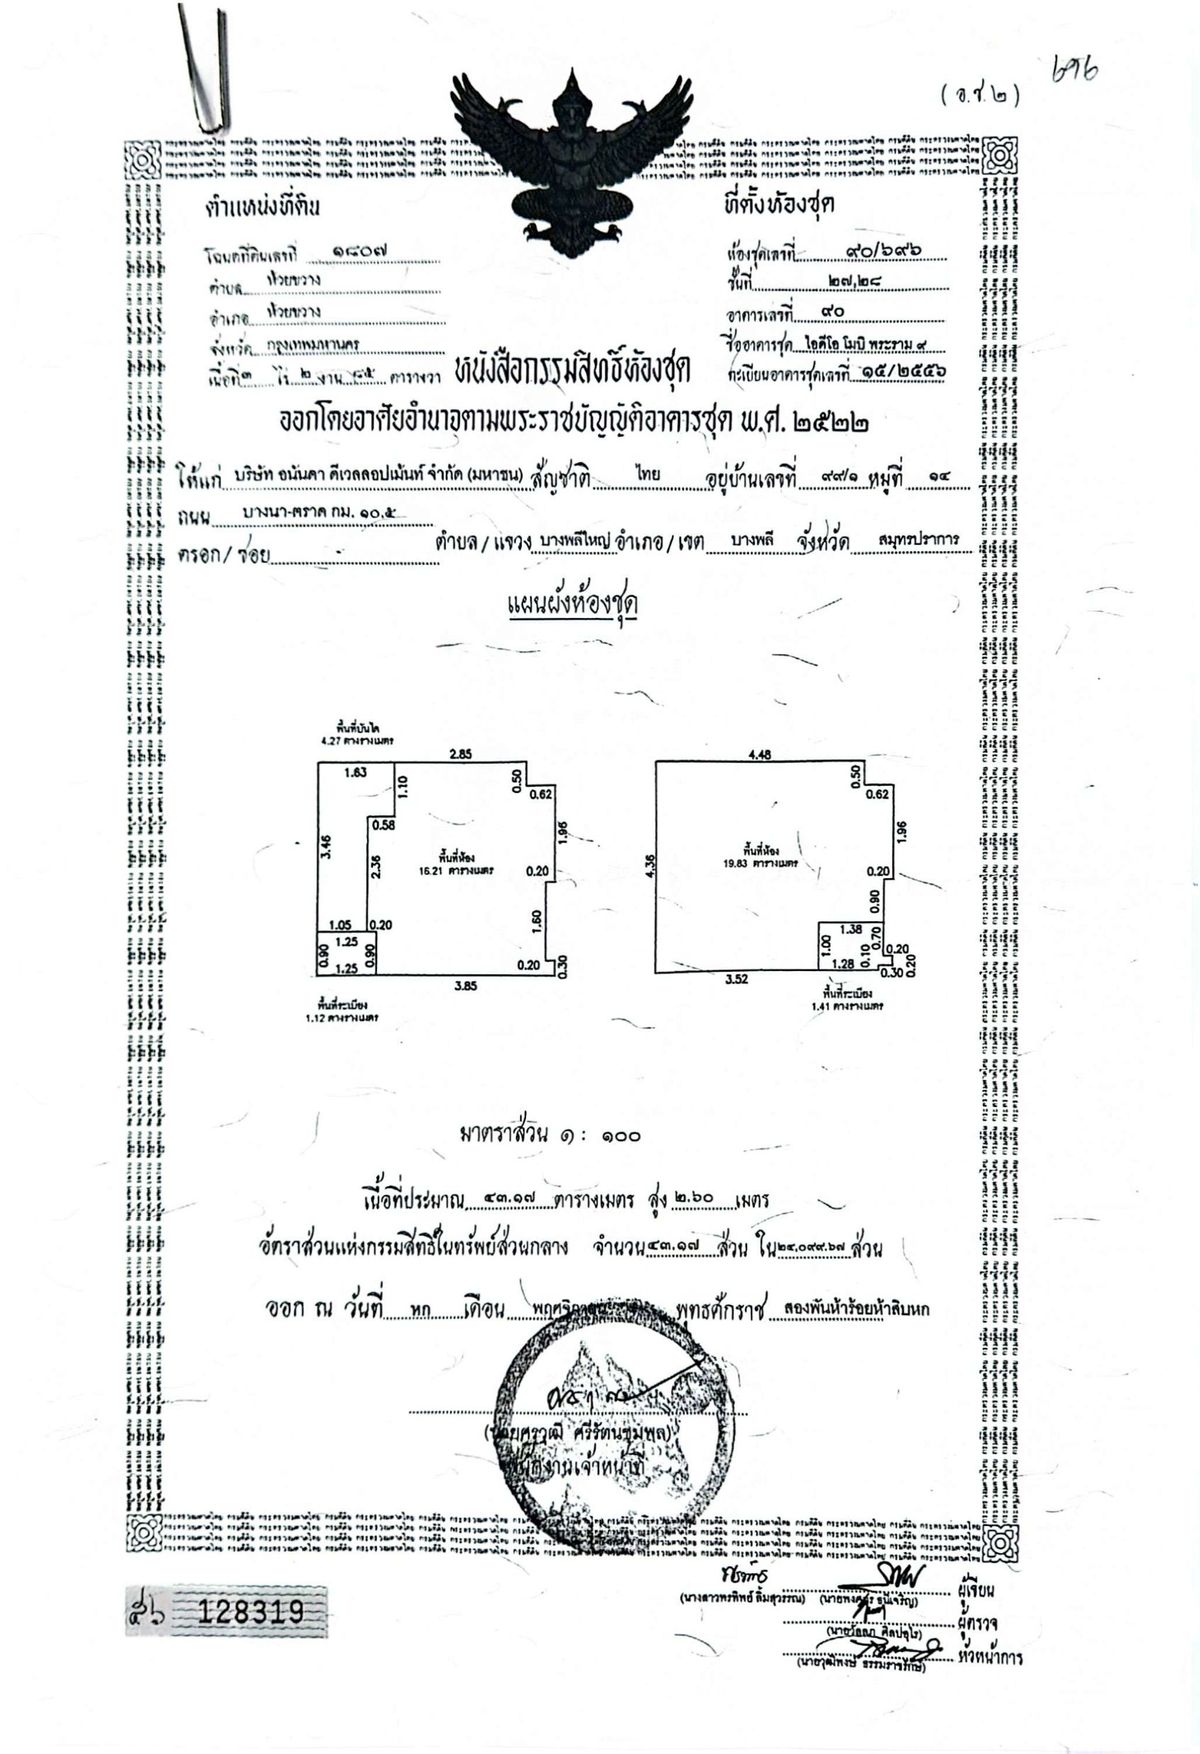 ๖๙๖
(อ.ช.๒)
ตำแหน่งที่ดิน
ที่ตั้งห้องชุด
โฉนดที่ดินเลขที่ ๑๘๐๗
ห้องชุดเลขที่ ๙๐/๖๙๖
ตำบล ห้วยขวาง
ชั้นที่ ๒๗,๒๘
อำเภอ ห้วยขวาง
อาคารเลขที่ ๙๐
จังหวัด กรุงเทพมหานคร
ชื่ออาคารชุด ไอดีโอ โมบิ พระราม ๙
เนื้อที่ ๓ ไร่ ๒ งาน ๘๕ ตารางวา
ทะเบียนอาคารชุดเลขที่ ๑๕/๒๕๕๖
หนังสือกรรมสิทธิ์ห้องชุด
ออกโดยอาศัยอำนาจตามพระราชบัญญัติอาคารชุด พ.ศ. ๒๕๒๒
ให้แก่ บริษัท อนันดา ดีเวลลอปเม้นท์ จำกัด (มหาชน) สัญชาติ ไทย อยู่บ้านเลขที่ ๙๙/๑ หมู่ที่ ๑๔
ถนน บางนา-ตราด กม. ๑๐.๕
ตรอก/ซอย - ตำบล/แขวง บางพลีใหญ่ อำเภอ/เขต บางพลี จังหวัด สมุทรปราการ
แผนผังห้องชุด
พื้นที่บันได
4.27 ตารางเมตร
2.85
1.63
1.10
0.50
0.62
0.58
3.46
2.36
1.96
พื้นที่ห้อง
16.21 ตารางเมตร
0.20
1.60
1.05
0.20
1.25
0.90
0.90
1.25
0.20
0.30
3.85
พื้นที่ระเบียง
1.12 ตารางเมตร
4.48
0.50
0.62
1.96
4.36
พื้นที่ห้อง
19.83 ตารางเมตร
0.20
0.90
1.38
0.70
1.00
0.10
0.20
1.28
0.30
0.20
3.52
พื้นที่ระเบียง
1.41 ตารางเมตร
มาตราส่วน ๑ : ๑๐๐
เนื้อที่ประมาณ ๔๓.๑๗ ตารางเมตร สูง ๒.๖๐ เมตร
อัตราส่วนแห่งกรรมสิทธิ์ในทรัพย์ส่วนกลาง จำนวน ๔๓.๑๗ ส่วน ใน ๒๔,๐๙๙.๖๗ ส่วน
ออก ณ วันที่ หก เดือน พฤศจิกายน พุทธศักราช สองพันห้าร้อยห้าสิบหก
(นายศรวุฒิ ศรีรัตนชุมพล)
พนักงานเจ้าหน้าที่
ผู้เขียน
(นางสาวพรทิพย์ ลิ้มสุวรรณ)
ผู้ตรวจ
หัวหน้าการ
128319